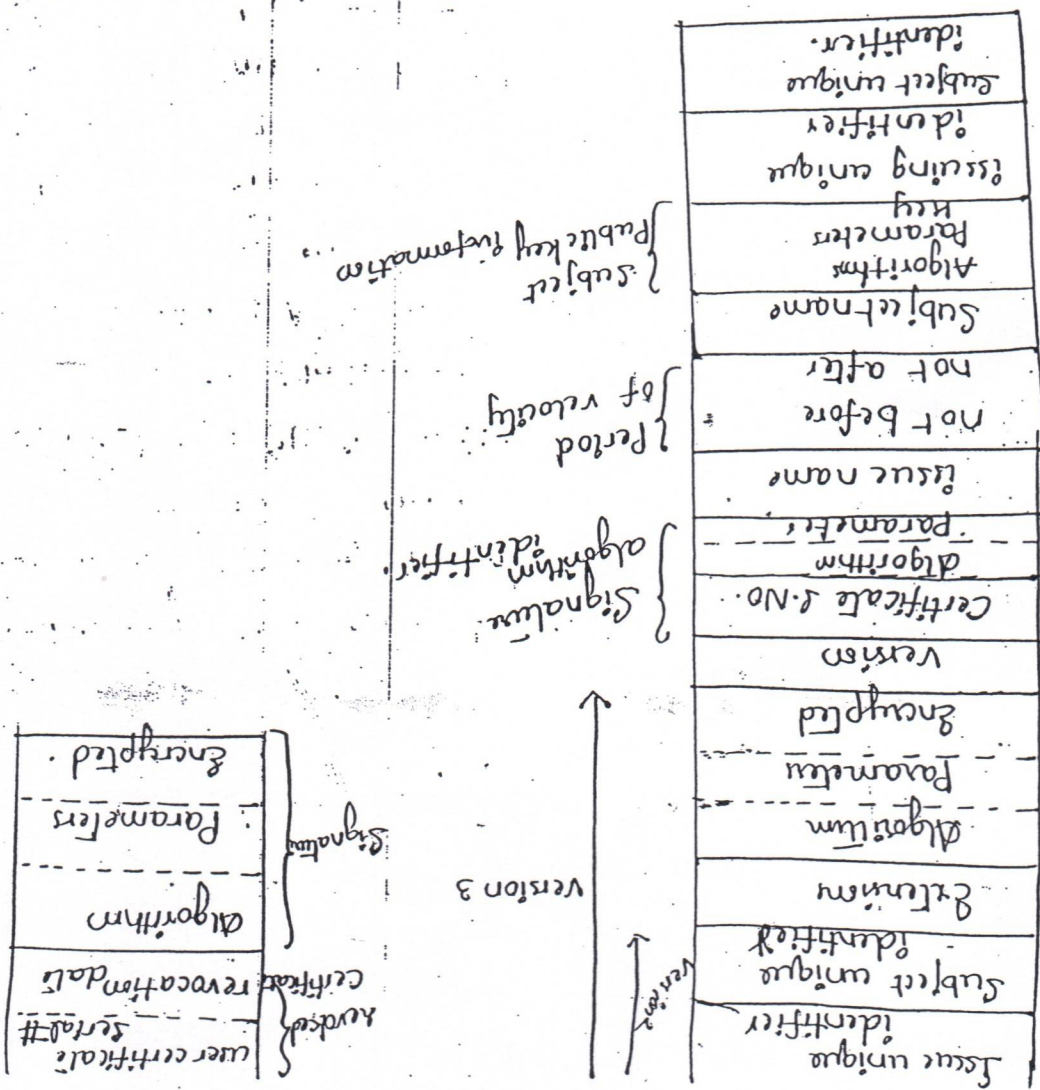 Issue unique
identifier
Subject unique
identifier
Extensions
Algorithm
Parameter
Encrypted
Version
Certificate S.NO.
Algorithm
Parameter
issue name
not before
not after
Subject name
Algorithms
Parameters
Key
issuing unique
identifier
Subject unique
identifier.
Version 2
Version 3
Signature
algorithm
identifier.
Period
of velocity
Subject
Public key information
revoked
certificate
user certificate
serial #
revocation date
Signature
Algorithm
Parameters
Encrypted